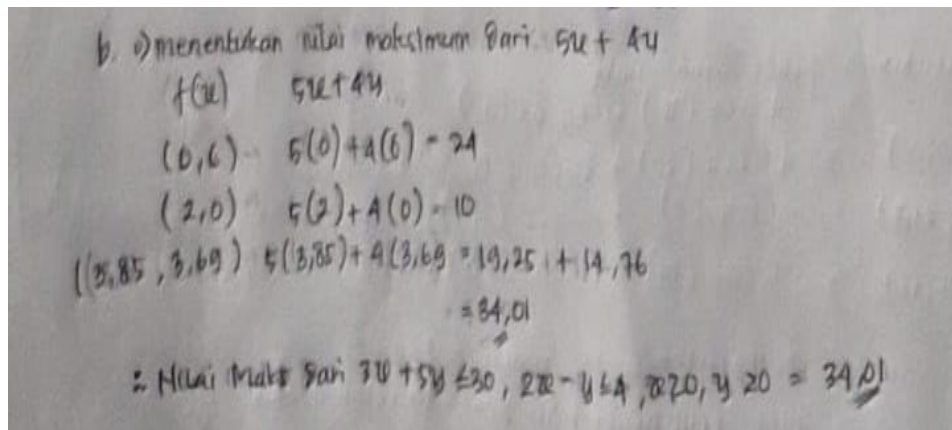 b. i) menentukan nilai maksimum dari 5x + 4y
f(x) 5x+4y
(0,6) 5(0)+4(6) = 24
(2,0) 5(2)+4(0) = 10
((3,85 , 3,69) 5(3,85)+4(3,69 = 19,25 + 14,76
= 34,01
∴ Nilai Maks dari 3x + 5y ≤ 30, 2x - y ≤ 4, x ≥ 0, y ≥ 0 = 34,01